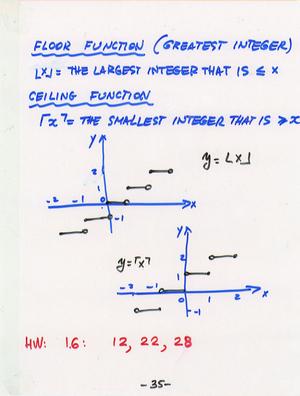 FLOOR FUNCTION (GREATEST INTEGER)
⌊x⌋ = THE LARGEST INTEGER THAT IS ≤ x
CEILING FUNCTION
⌈x⌉ = THE SMALLEST INTEGER THAT IS ≥ x
y
y = ⌊x⌋
2
1
-2 -1 0 x
-1
y
y = ⌈x⌉
2
1
-2 -1 0 1 2 x
-1
HW: 1.6: 12, 22, 28
-35-